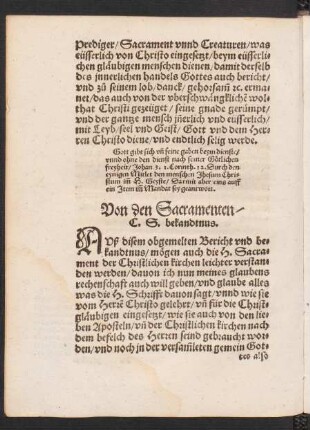 Prediger/ Sacrament vnnd Creaturen/ was
eüsserlich von Christo eingesetzt/ beym eüsserli-
chen glåubigen menschen dienen/ damit derselb
des jnnerlichen handels Gottes auch bericht/
vnd zů seinem lob/ danck/ gehorsam̃ ꝛc. erma-
net/ das auch von der vberschwängklichẽ wol-
that Christi gezeüget/ seine gnade gerümpt/
vnd der gantze mensch jnerlich vnd eüsserlich/
mit Leyb/ seel vnd Geist/ Gott vnd dem Her-
ren Christo diene/ vnd endtlich selig werde.
Gott gibt sich vñ seine gaben beym dienste/
vnnd ohne den dienst nach seiner Götlichen
freyheit/ Johan 3. 1. Corinth. 12. Durch den
eynigen Mitler den menschen Jhesum Chri-
stum im̃ H. Geyste/ Darmit aber eins auff
ein Item im̃ Mandat sey geantwort.
Von den Sacramenten/
C. S. bekandtnus.
AVß disem obgemelten Bericht vnd be-
kandtnus/ mögen auch die H. Sacra-
ment der Christlichen kirchen leichter verstan
den werden/ dauon ich nun meines glaubens
rechenschafft auch will geben/ vnd glaube alles
was die H. Schrifft dauon sagt/ vnnd wie sie
vom Herrẽ Christo gelehrt/ vñ für die Christ-
gläubigen eingesetzt/ wie sie auch von den lie-
ben Aposteln/ vñ der Christlichen kirchen nach
dem befelch des Herren seind gebraucht wor-
den/ vnd noch in der versam̃leten gemein Got-
tes also